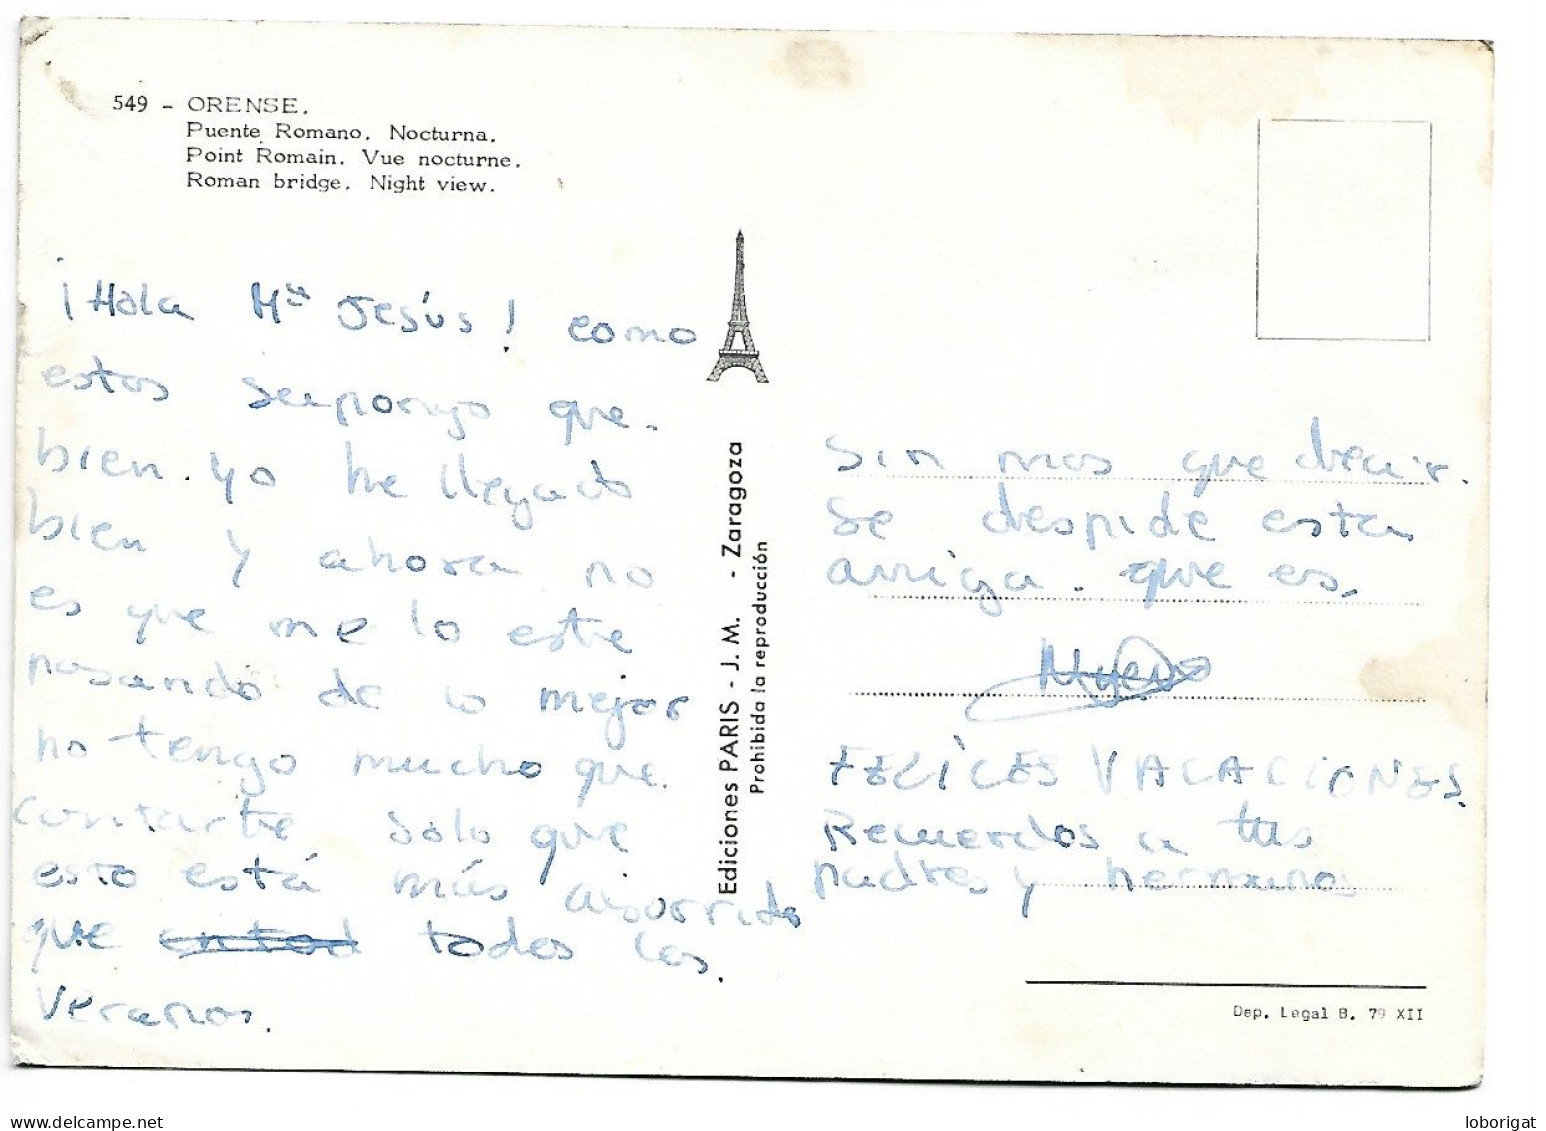 549 - ORENSE.
Puente Romano. Nocturna.
Point Romain. Vue nocturne.
Roman bridge. Night view.
¡Hola Mª Jesús! como
estas seupongo que.
bien. yo he llegado
bien y ahora no
es que me lo este
pasando de lo mejor
no tengo mucho que.
contarte solo que
esto está más aburrido
que todos los.
veranos.
Ediciones PARIS - J. M. - Zaragoza
Prohibida la reproducción
Sin mas que decir.
se despide esta
amiga. que es.
FELICES VACACIONES.
Recuerdos a tus
padres y hermanos
Dep. Legal B. 79 XII
delcampe.net
loborigat